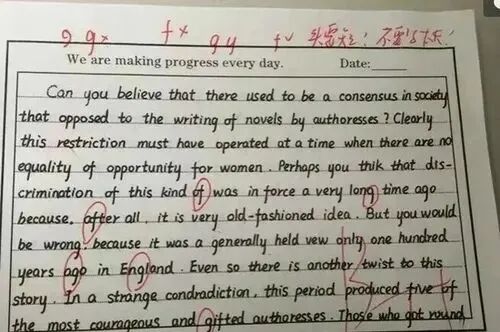 g g× f× g y f✓ 头要短！不要
We are making progress every day. Date:
Can you believe that there used to be a consensus in society
that opposed to the writing of novels by authoresses? Clearly
this restriction must have operated at a time when there are no
equality of opportunity for women. Perhaps you thik that dis-
crimination of this kind of was in force a very long time ago
because, after all, it is very old-fashioned idea. But you would
be wrong, because it was a generally held vew only one hundred
years ago in England. Even so there is another twist to this
story. In a strange condradiction, this period produced five of
the most courageous and gifted authoresses. Those who got round